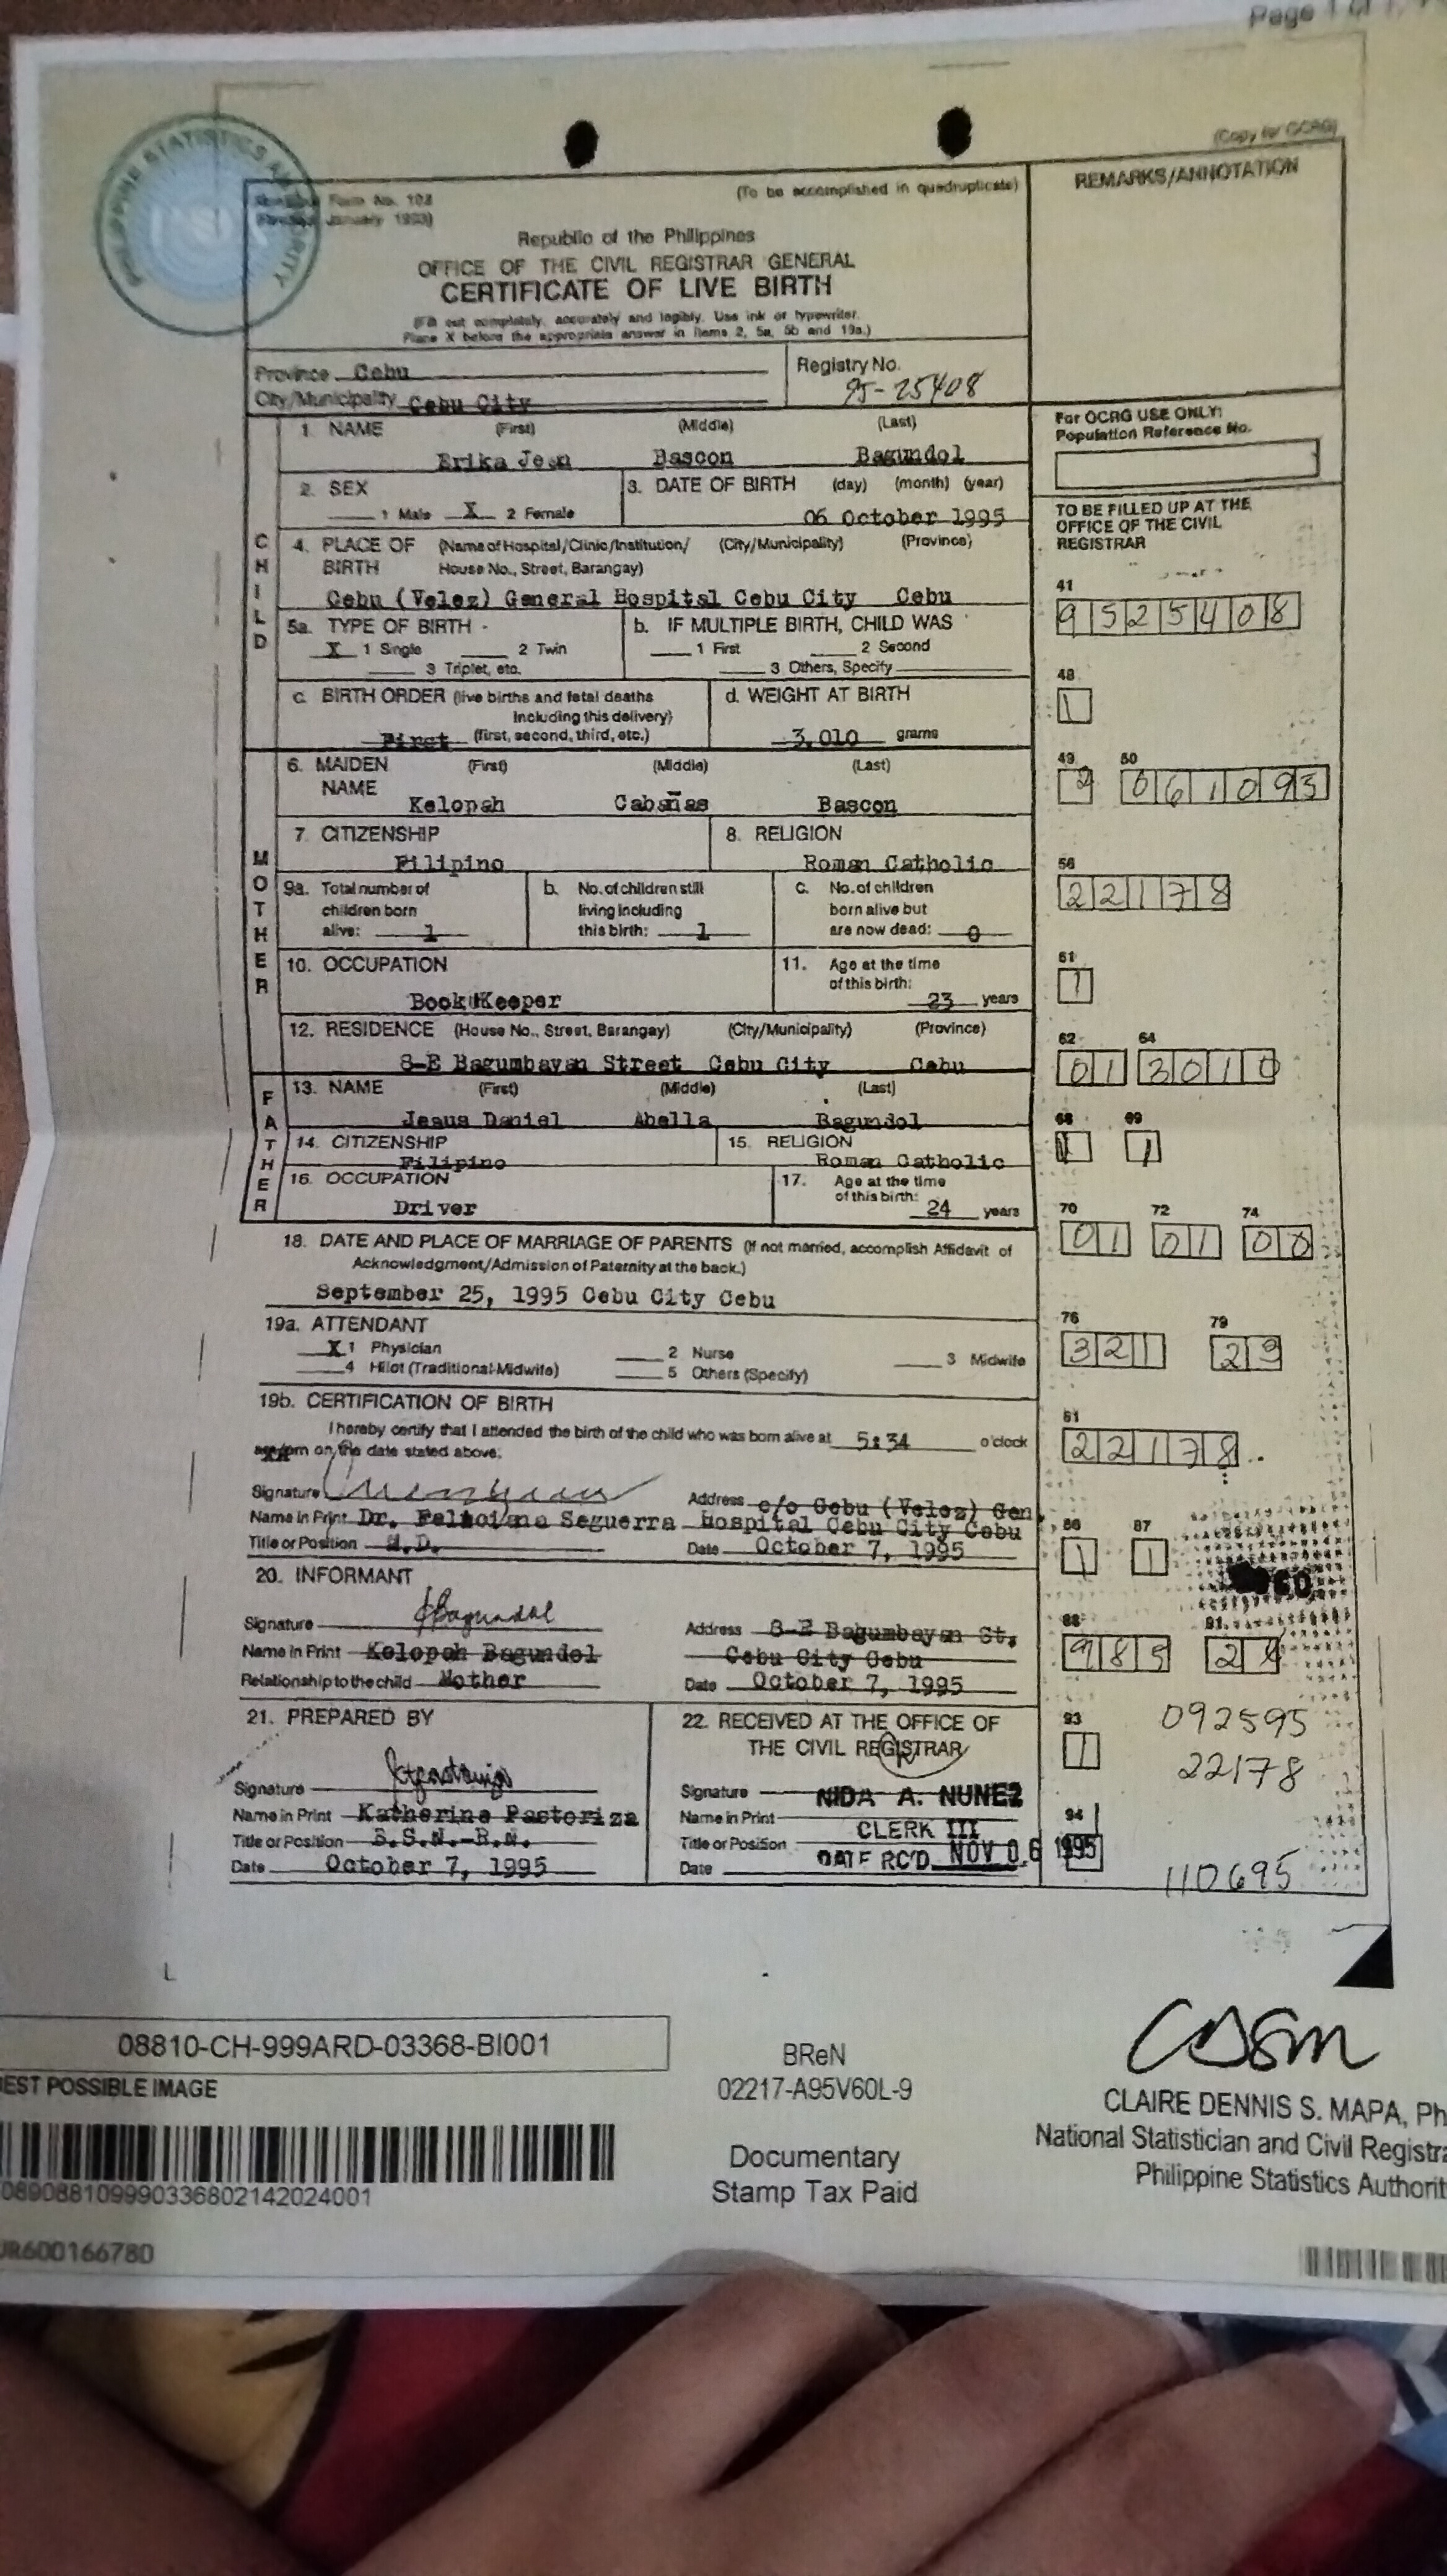 Page 1 of 1
(Copy for OCRG)
PHILIPPINE STATISTICS AUTHORITY
Form No. 102
January 1993)
(To be accomplished in quadruplicate)
REMARKS/ANNOTATION
Republic of the Philippines
OFFICE OF THE CIVIL REGISTRAR GENERAL
CERTIFICATE OF LIVE BIRTH
(Fill out completely, accurately and legibly. Use ink or typewriter.
Place X before the appropriate answer in items 2, 5a, 5b and 19a.)
Province Cebu
City/Municipality Cebu City
Registry No.
95-25408
For OCRG USE ONLY:
Population Reference No.
CHILD
1. NAME (First) (Middle) (Last)
Erika Jean Bascon Bagundol
2. SEX
1 Male X 2 Female
3. DATE OF BIRTH (day) (month) (year)
06 October 1995
TO BE FILLED UP AT THE
OFFICE OF THE CIVIL
REGISTRAR
4. PLACE OF BIRTH (Name of Hospital/Clinic/Institution/ (City/Municipality) (Province)
House No., Street, Barangay)
Cebu (Velez) General Hospital Cebu City Cebu
41
9525408
5a. TYPE OF BIRTH
X 1 Single 2 Twin
3 Triplet, etc.
b. IF MULTIPLE BIRTH, CHILD WAS
1 First 2 Second
3 Others, Specify
48
1
c. BIRTH ORDER (live births and fetal deaths
including this delivery)
First (first, second, third, etc.)
d. WEIGHT AT BIRTH
3,010 grams
49 50
2 061095
MOTHER
6. MAIDEN NAME (First) (Middle) (Last)
Kelopah Cabañas Bascon
7. CITIZENSHIP
Filipino
8. RELIGION
Roman Catholic
56
22178
9a. Total number of
children born
alive: 1
b. No. of children still
living including
this birth: 1
c. No. of children
born alive but
are now dead: 0
10. OCCUPATION
Book Keeper
11. Age at the time
of this birth:
23 years
61
1
12. RESIDENCE (House No., Street, Barangay) (City/Municipality) (Province)
8-E Bagumbayan Street Cebu City Cebu
62 64
01 3010
FATHER
13. NAME (First) (Middle) (Last)
Jesus Daniel Abella Bagundol
14. CITIZENSHIP
Filipino
15. RELIGION
Roman Catholic
68 69
1 1
16. OCCUPATION
Driver
17. Age at the time
of this birth:
24 years
70 72 74
01 01 00
18. DATE AND PLACE OF MARRIAGE OF PARENTS (If not married, accomplish Affidavit of
Acknowledgment/Admission of Paternity at the back.)
September 25, 1995 Cebu City Cebu
19a. ATTENDANT
X 1 Physician 2 Nurse 3 Midwife
4 Hilot (Traditional Midwife) 5 Others (Specify)
76 79
321 29
19b. CERTIFICATION OF BIRTH
I hereby certify that I attended the birth of the child who was born alive at 5:34 o'clock
am/pm on the date stated above.
81
22178
Signature
Name in Print Dr. Feliciana Seguerra
Title or Position M.D.
Address c/o Cebu (Velez) Gen.
Hospital Cebu City Cebu
Date October 7, 1995
86 87
1 1
20. INFORMANT
Signature
Name in Print Kelopah Bagundol
Relationship to the child Mother
Address 8-E Bagumbayan St.
Cebu City Cebu
Date October 7, 1995
88 91
21. PREPARED BY
Signature
Name in Print Katherine Pastoriza
Title or Position B.S.N.-R.N.
Date October 7, 1995
22. RECEIVED AT THE OFFICE OF
THE CIVIL REGISTRAR
Signature NIDA A. NUNEZ
Name in Print
Title or Position CLERK III
Date DATE RC'D NOV 06 1995
93
1
94
092595
22178
110695
08810-CH-999ARD-03368-BI001
EST POSSIBLE IMAGE
08908810999033680214 2024001
UR600166780
BReN
02217-A95V60L-9
Documentary
Stamp Tax Paid
CLAIRE DENNIS S. MAPA, Ph
National Statistician and Civil Registra
Philippine Statistics Authorit